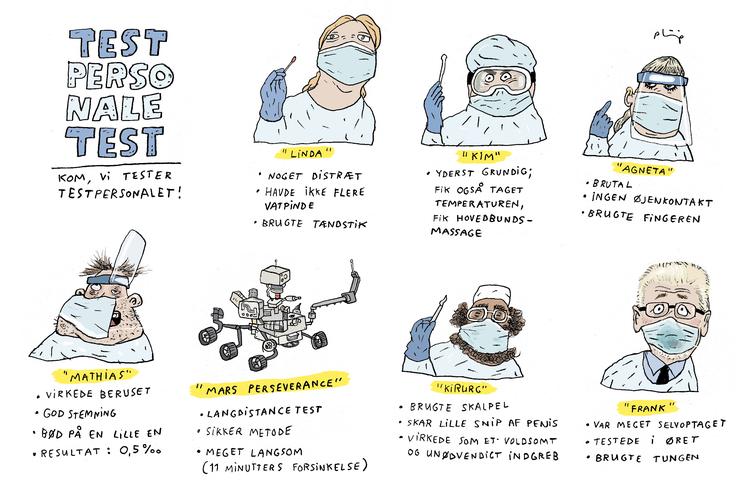 TEST
PERSO
NALE
TEST
KOM, VI TESTER
TESTPERSONALET!
"LINDA"
• NOGET DISTRÆT
• HAVDE IKKE FLERE
VATPINDE
• BRUGTE TÆNDSTIK
"KIM"
• YDERST GRUNDIG;
FIK OGSÅ TAGET
TEMPERATUREN,
FIK HOVEDBUNDS-
MASSAGE
"AGNETA"
• BRUTAL
• INGEN ØJENKONTAKT
• BRUGTE FINGEREN
"MATHIAS"
• VIRKEDE BERUSET
• GOD STEMNING
• BØD PÅ EN LILLE EN
• RESULTAT : 0,5‰
"MARS PERSEVERANCE"
• LANGDISTANCE TEST
• SIKKER METODE
• MEGET LANGSOM
(11 MINUTTERS FORSINKELSE)
"KIRURG"
• BRUGTE SKALPEL
• SKAR LILLE SNIP AF PENIS
• VIRKEDE SOM ET VOLDSOMT
OG UNØDVENDIGT INDGREB
"FRANK"
• VAR MEGET SELVOPTAGET
• TESTEDE I ØRET
• BRUGTE TUNGEN